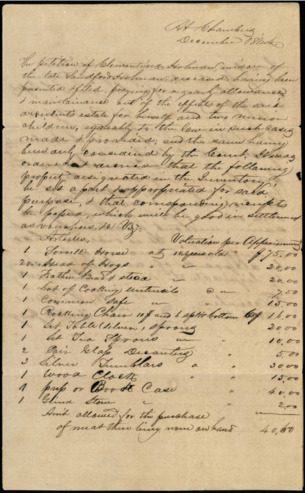 At Chambers
December
The petition of Clementine Holman widow of
the late Sandford Holman deceased having been
presented & filed, praying for a yearly allowance
& maintenance out of the effects of the said
estate for herself and two minor
children, agreeably to the law in such cases
made & provided, and the same having
been duly considered by the Court, It was
ordered that the following
property designated in the Inventory
be set apart & appropriated for said
purpose, & that corresponding receipts
be passed, which will be good in settlement
as vouchers &c Viz:
Articles. Valuation per Appraisement
1 Sorrell Horse at $75.00
20 Head of Hogs " 20,00
1 Feather Bed & stead " 20,00
1 Lot of Cooking Utensils " "
1 Common Safe " 15,00
1 Rocking Chair & split bottom 11,00
1 Set Table & Spoons 20,00
1 Set Tea Spoons " 10,00
2 Pair Glass Decanters " 5,00
2 Silver Tumblers " 30 00
1 Wood Clock " 15,00
1 or Book Case " 40,00
1 Grind Stone " 2,00
Amt allowed for the purchase
of meat there being none on hand 40,00